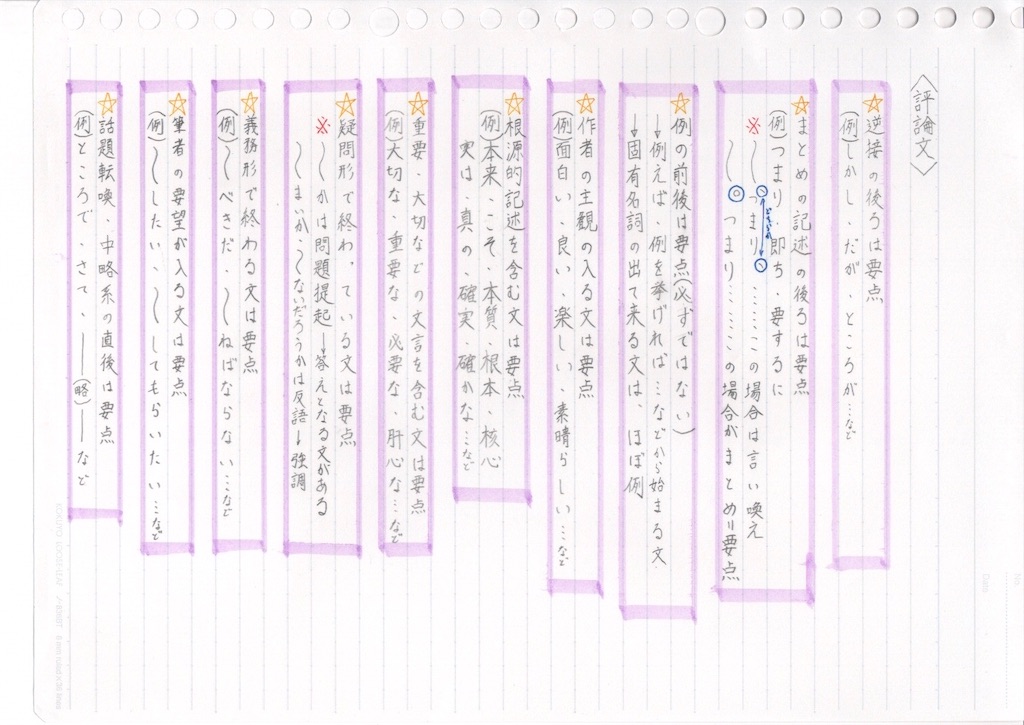 〈評論文〉
☆逆接の後ろは要点
(例)しかし、だが、ところが…など
☆まとめの記述の後ろは要点
(例)つまり、即ち、要するに
※〜、つまり、……この場合は言い換え
〜。つまり……この場合がまとめ=要点
☆例の前後は要点(必ずではない)
→例えば、例を挙げれば…などから始まる文
→固有名詞の出て来る文は、ほぼ例
☆作者の主観の入る文は要点
(例)面白い、良い、楽しい、素晴らしい…など
☆根源的記述を含む文は要点
(例)本来、こそ、本質、根本、核心
実は、真の、確実、確かな…など
☆重要、大切などの文言を含む文は要点
(例)大切な、重要な、必要な、肝心な…など
☆疑問形で終わっている文は要点
※〜かは問題提起→答えとなる文がある
〜まいか、〜ないだろうかは反語→強調
☆義務形で終わる文は要点
(例)〜べきだ、〜ねばならない…など
☆筆者の要望が入る文は要点
(例)〜したい、〜してもらいたい…など
☆話題転喚、中略系の直後は要点
(例)ところで、さて、――(略)――など
KOKUYO LOOSE-LEAF
No.
Date